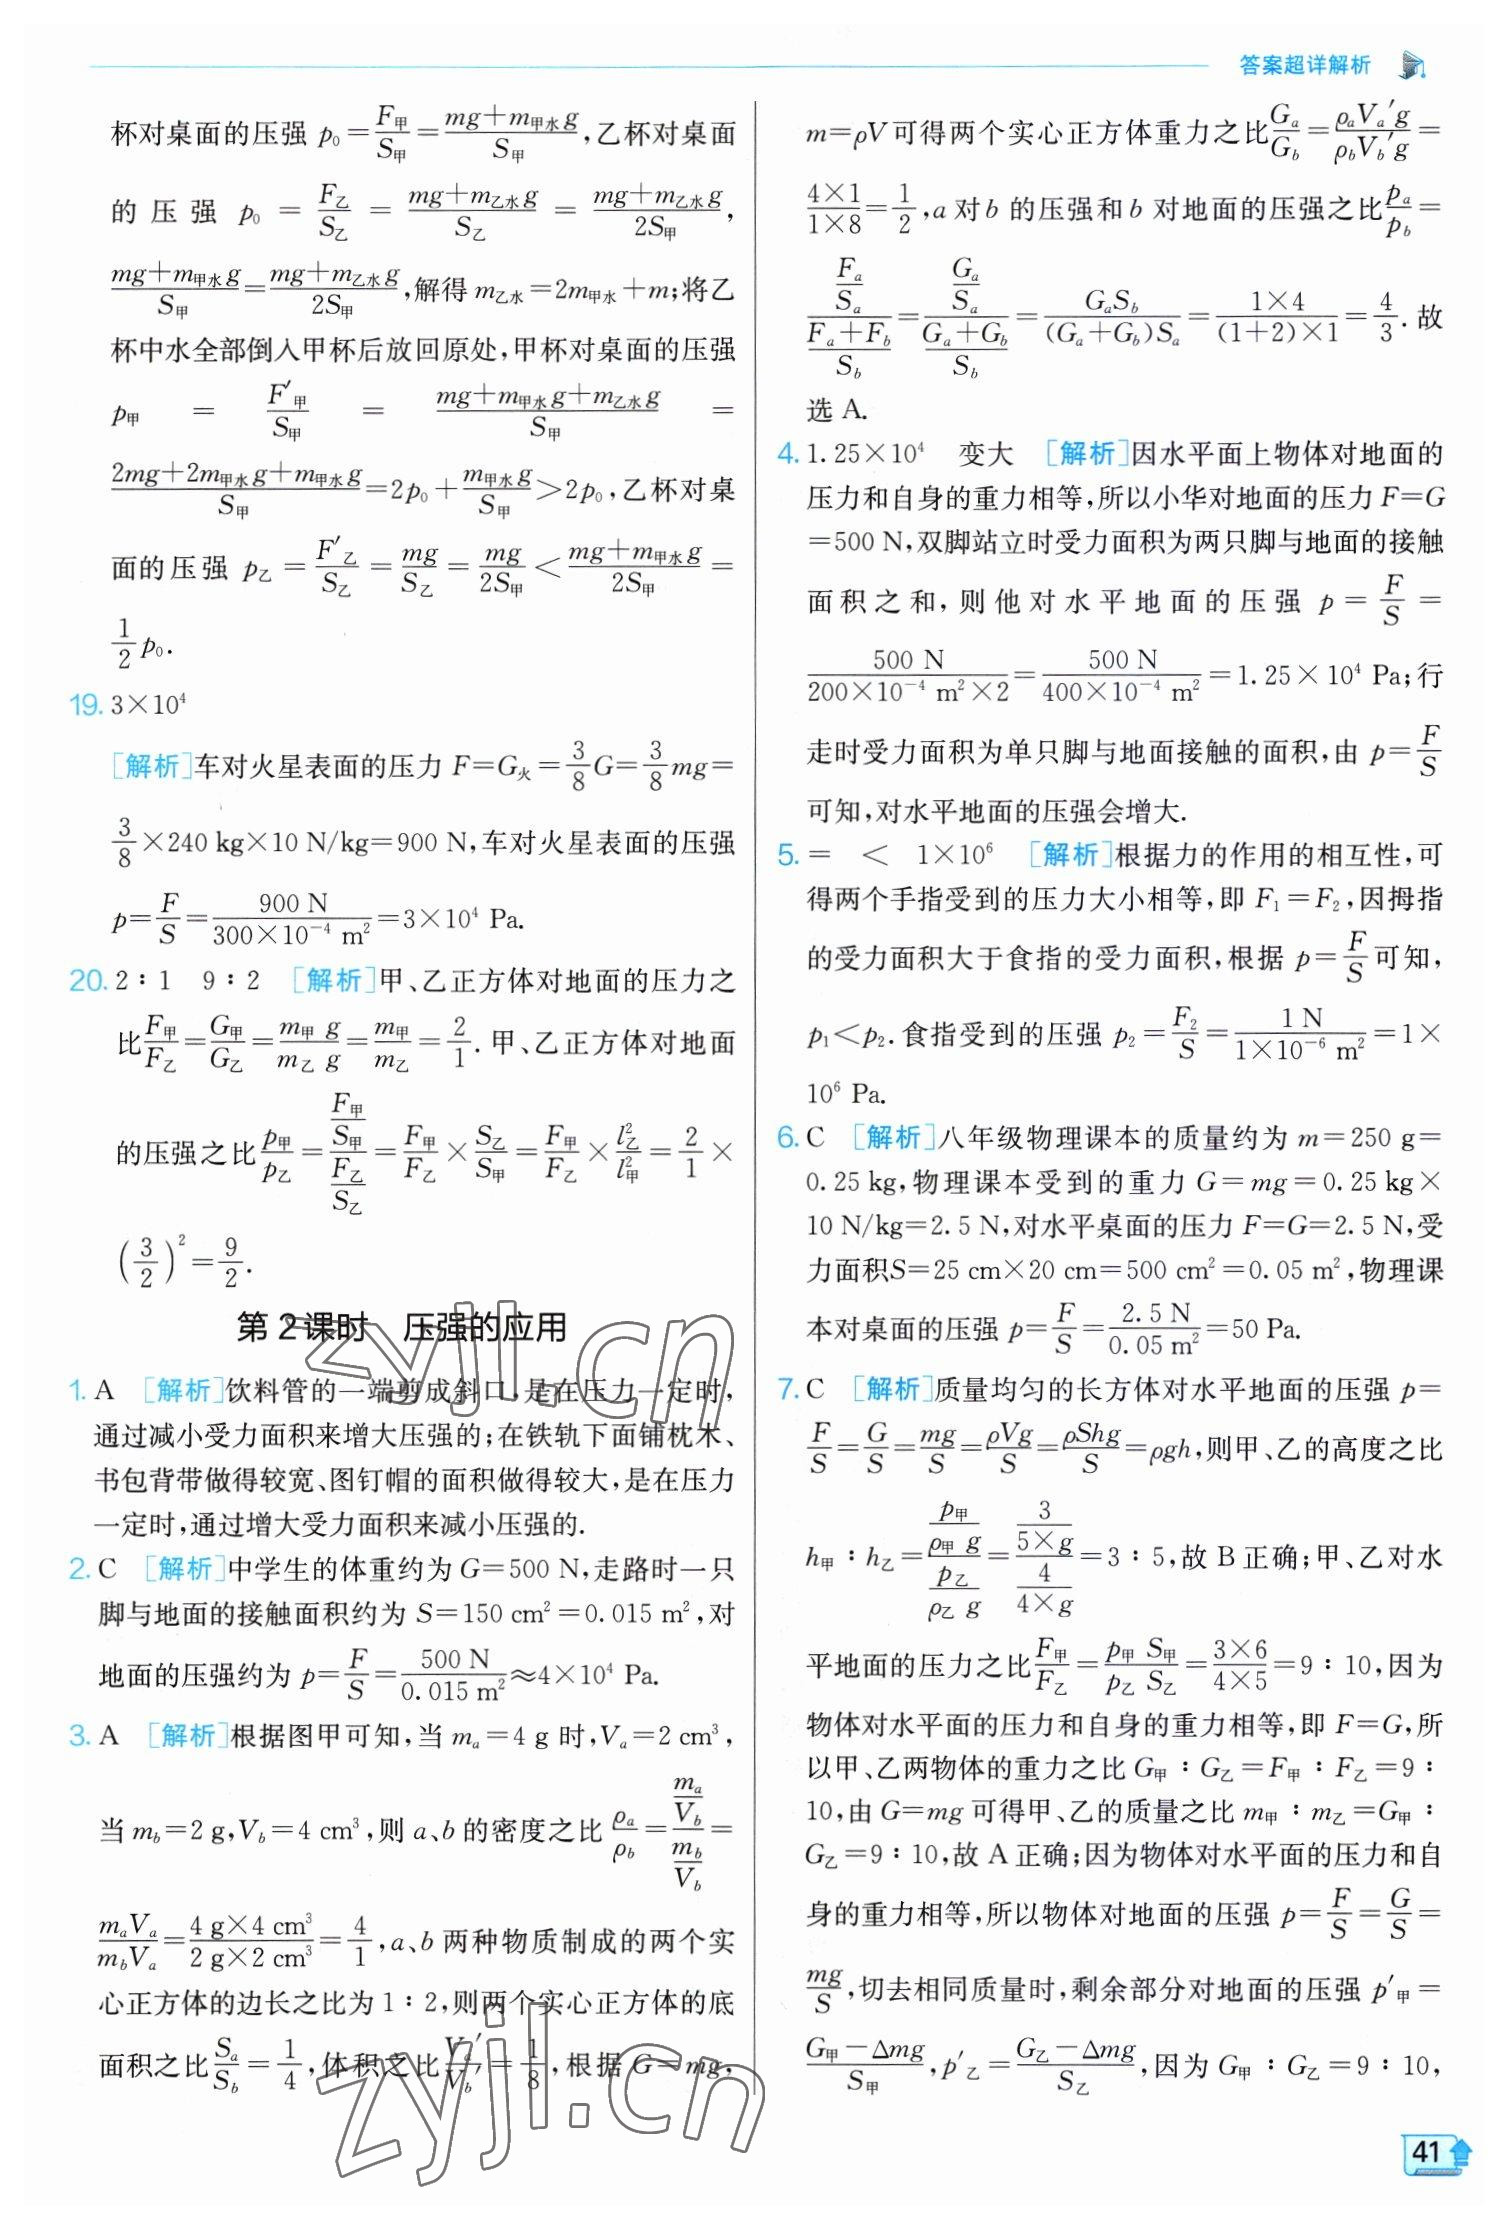 答案超详解析
杯对桌面的压强 p₀=F甲/S甲=(mg+m甲水g)/S甲,乙杯对桌面
的压强 p₀=F乙/S乙=(mg+m乙水g)/S乙=(mg+m乙水g)/2S甲,
(mg+m甲水g)/S甲=(mg+m乙水g)/2S甲,解得 m乙水=2m甲水+m;将乙
杯中水全部倒入甲杯后放回原处,甲杯对桌面的压强
p甲=F′甲/S甲=(mg+m甲水g+m乙水g)/S甲=
(2mg+2m甲水g+m甲水g)/S甲=2p₀+m甲水g/S甲>2p₀,乙杯对桌
面的压强 p乙=F′乙/S乙=mg/S乙=mg/2S甲<(mg+m甲水g)/2S甲=
1/2 p₀.
19. 3×10⁴
[解析]车对火星表面的压力 F=G火=3/8 G=3/8 mg=
3/8×240 kg×10 N/kg=900 N,车对火星表面的压强
p=F/S=900 N/(300×10⁻⁴ m²)=3×10⁴ Pa.
20. 2∶1 9∶2 [解析]甲、乙正方体对地面的压力之
比F甲/F乙=G甲/G乙=m甲 g/m乙 g=m甲/m乙=2/1.甲、乙正方体对地面
的压强之比p甲/p乙=(F甲/S甲)/(F乙/S乙)=F甲/F乙×S乙/S甲=F甲/F乙×l²乙/l²甲=2/1×
(3/2)²=9/2.
第2课时 压强的应用
1. A [解析]饮料管的一端剪成斜口,是在压力一定时,
通过减小受力面积来增大压强的;在铁轨下面铺枕木、
书包背带做得较宽、图钉帽的面积做得较大,是在压力
一定时,通过增大受力面积来减小压强的.
2. C [解析]中学生的体重约为 G=500 N,走路时一只
脚与地面的接触面积约为 S=150 cm²=0.015 m²,对
地面的压强约为 p=F/S=500 N/0.015 m²≈4×10⁴ Pa.
3. A [解析]根据图甲可知,当 mₐ=4 g 时,Vₐ=2 cm³,
当 m_b=2 g,V_b=4 cm³,则 a、b 的密度之比 ρₐ/ρ_b=(mₐ/V_b)/(m_b/V_b)=
mₐVₐ/m_bVₐ=(4 g×4 cm³)/(2 g×2 cm³)=4/1,a、b 两种物质制成的两个实
心正方体的边长之比为 1∶2,则两个实心正方体的底
面积之比Sₐ/S_b=1/4,体积之比Vₐ′/V_b′=1/8,根据 G=mg,
m=ρV 可得两个实心正方体重力之比Gₐ/G_b=ρₐVₐ′g/ρ_bV_b′g=
(4×1)/(1×8)=1/2,a 对 b 的压强和 b 对地面的压强之比pₐ/p_b=
(Fₐ/Sₐ)/((Fₐ+F_b)/S_b)=(Gₐ/Sₐ)/((Gₐ+G_b)/S_b)=GₐS_b/(Gₐ+G_b)Sₐ=(1×4)/((1+2)×1)=4/3.故
选 A.
4. 1.25×10⁴ 变大 [解析]因水平面上物体对地面的
压力和自身的重力相等,所以小华对地面的压力 F=G
=500 N,双脚站立时受力面积为两只脚与地面的接触
面积之和,则他对水平地面的压强 p=F/S=
500 N/(200×10⁻⁴ m²×2)=500 N/(400×10⁻⁴ m²)=1.25×10⁴ Pa;行
走时受力面积为单只脚与地面接触的面积,由 p=F/S
可知,对水平地面的压强会增大.
5. = < 1×10⁶ [解析]根据力的作用的相互性,可
得两个手指受到的压力大小相等,即 F₁=F₂,因拇指
的受力面积大于食指的受力面积,根据 p=F/S可知,
p₁<p₂.食指受到的压强 p₂=F₂/S=1 N/(1×10⁻⁶ m²)=1×
10⁶ Pa.
6. C [解析]八年级物理课本的质量约为 m=250 g=
0.25 kg,物理课本受到的重力 G=mg=0.25 kg×
10 N/kg=2.5 N,对水平桌面的压力 F=G=2.5 N,受
力面积S=25 cm×20 cm=500 cm²=0.05 m²,物理课
本对桌面的压强 p=F/S=2.5 N/0.05 m²=50 Pa.
7. C [解析]质量均匀的长方体对水平地面的压强 p=
F/S=G/S=mg/S=ρVg/S=ρShg/S=ρgh,则甲、乙的高度之比
h甲∶h乙=(p甲/ρ甲 g)/(p乙/ρ乙 g)=(3/(5×g))/(4/(4×g))=3∶5,故 B 正确;甲、乙对水
平地面的压力之比F甲/F乙=p甲 S甲/p乙 S乙=(3×6)/(4×5)=9∶10,因为
物体对水平面的压力和自身的重力相等,即 F=G,所
以甲、乙两物体的重力之比 G甲∶G乙=F甲∶F乙=9∶
10,由 G=mg 可得甲、乙的质量之比 m甲∶m乙=G甲∶
G乙=9∶10,故 A 正确;因为物体对水平面的压力和自
身的重力相等,所以物体对地面的压强 p=F/S=G/S=
mg/S,切去相同质量时,剩余部分对地面的压强 p′甲=
(G甲-Δmg)/S甲,p′乙=(G乙-Δmg)/S乙,因为 G甲∶G乙=9∶10,
zyjl.cn
zyjl.cn
41